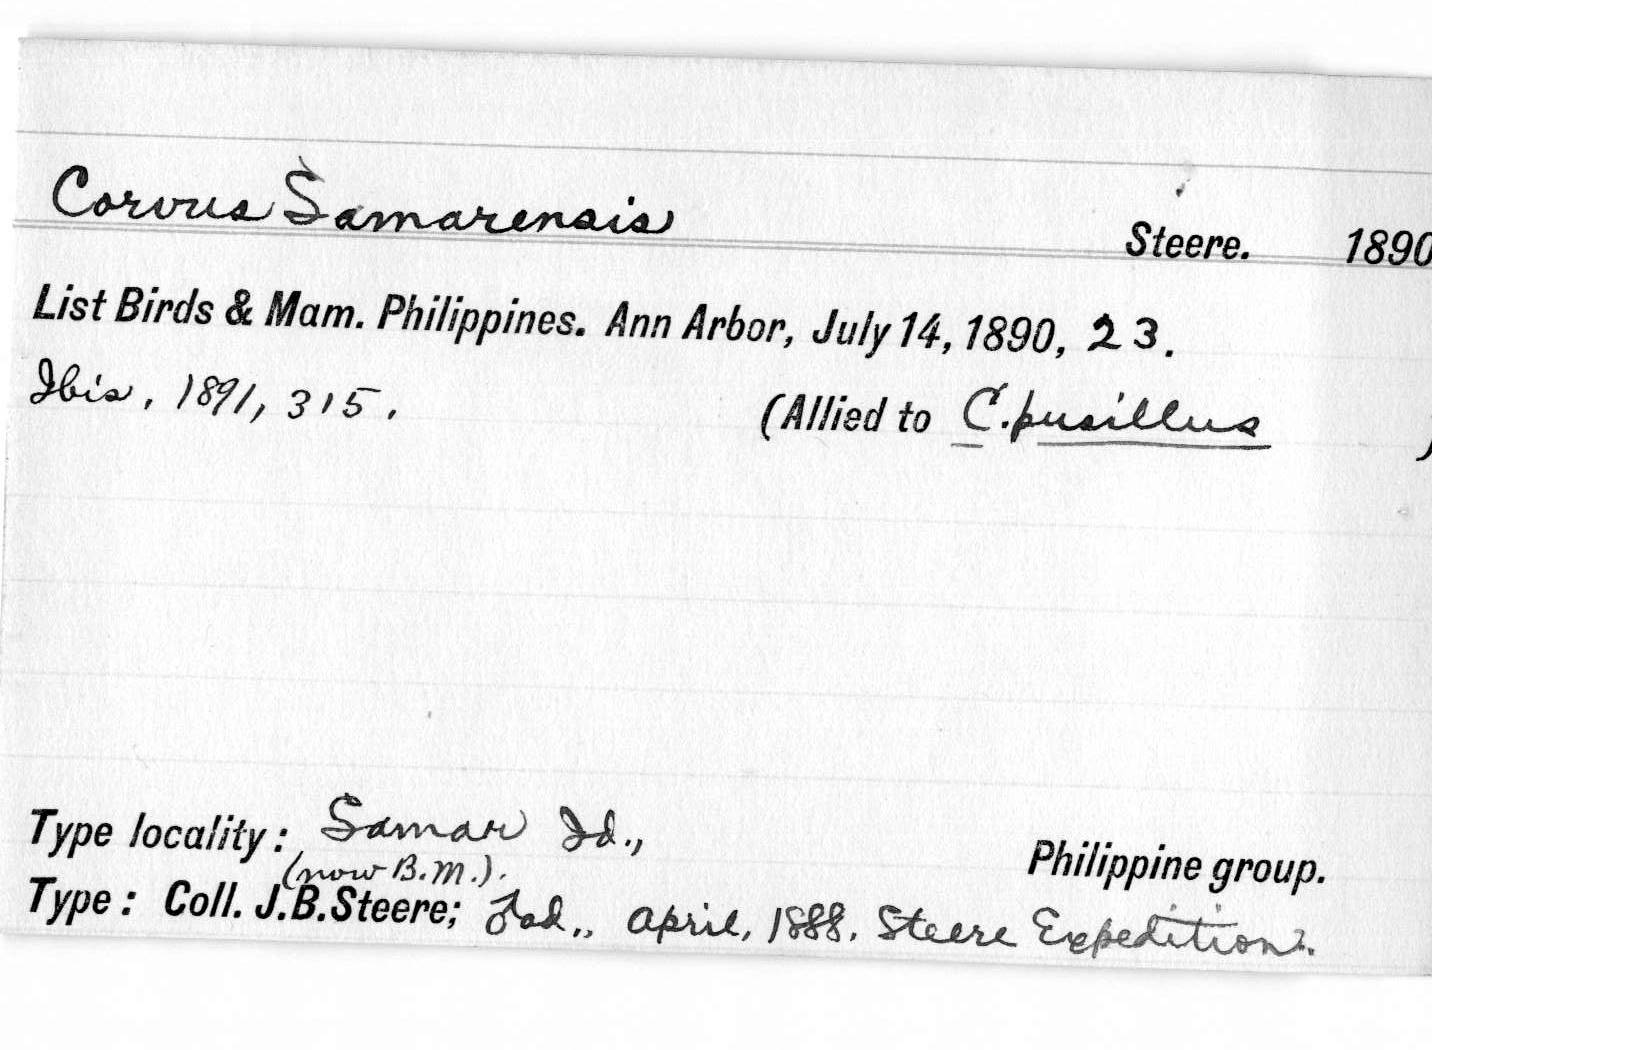 Corvus Samarensis Steere. 1890
List Birds & Mam. Philippines. Ann Arbor, July 14, 1890, 23.
Ibis, 1891, 315. (Allied to C. pusillus )
Type locality: Samar Id., Philippine group.
(now B.M.).
Type: Coll. J.B.Steere; ad., April, 1888. Steere Expedition.